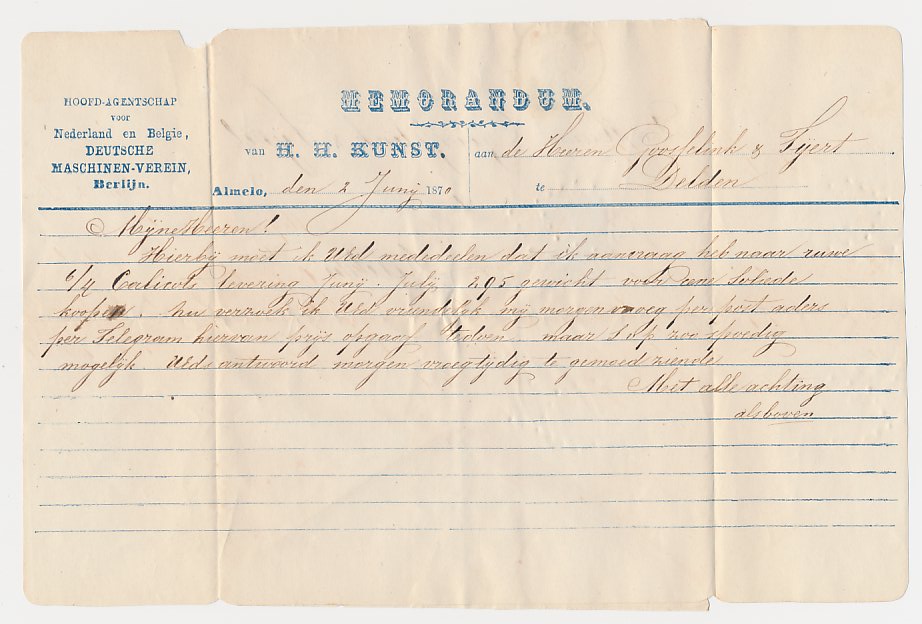 HOOFD-AGENTSCHAP
voor
Nederland en Belgie,
DEUTSCHE
MASCHINEN-VEREIN,
Berlijn.
MEMORANDUM.
van H. H. KUNST. aan de Heeren & 
Almelo, den 2 Junij 1870 te Delden
Mijne Heeren!
Hierbij moet ik UEd mededeelen dat ik aanvraag heb naar ruwe
6/4 Calicots levering Junij. Julij 295 gewicht voor eene Soliede
kooper. nu verzoek ik UEd vriendelijk mij morgen vroeg per post aders
per Telegram hiervan prijs opgaaf maar zoo spoedig
mogelijk. UEds antwoord morgen vroegtijdig te gemoed ziende
Met alle achting
als boven